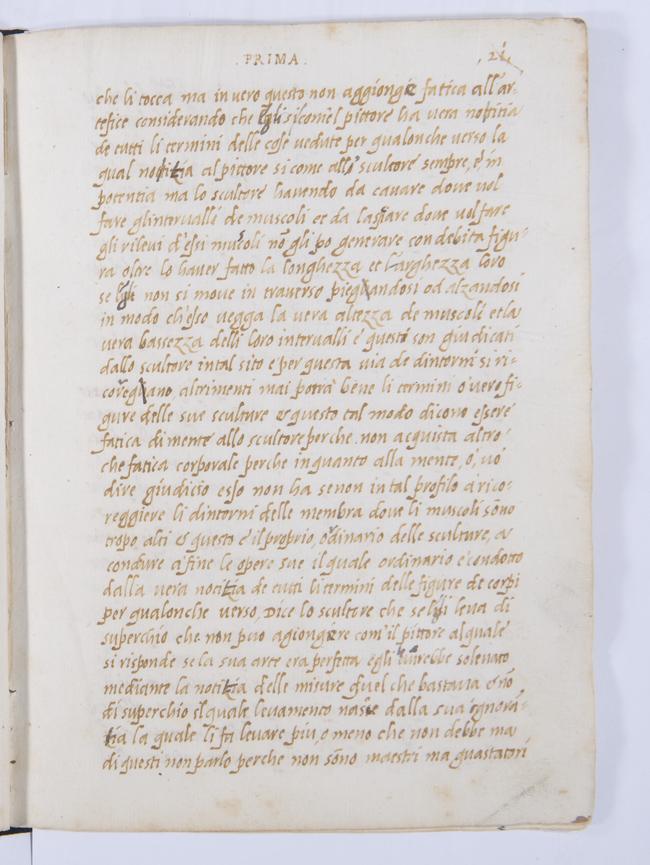 . PRIMA .
21
che li tocca ma in vero questo non aggionge fatica all'ar-
tefice considerando che egli si come'l pittore ha vera notitia
de tutti li termini delle cose vedute per qualonche verso la
qual notitia al pittore si come allo scultore sempre, é, in
potentia ma lo scultore havendo da cavare dove vol
fare gl'intervalli de muscoli et da lassare dove vol fare
gli rilevi d'essi muscoli nō gli po generare con debita figu-
ra oltre lo haver fatto la longhezza et larghezza loro
se egli non si move in traverso piegandosi od alzandosi
in modo ch'esso vegga la vera altezza de muscoli et la
vera bassezza delli loro intervalli é questi son giudicati
dallo scultore in tal sito e per questa via de dintorni si ri-
coregano, altrimenti mai potrà bene li termini o' vero fi-
gure delle sue sculture & questo tal modo dicono essere
fatica di mente allo scultore perche non acquista altro
che fatica corporale perche in quanto alla mente, o, vo'
dire giudicio esso non ha senon in tal profilo a rico-
reggiere li dintorni delle membra dove li muscoli sōno
tropo alti & questo é il proprio, ordinario delle sculture, a
condure a' fine le opere sue il quale ordinario e' condotto
dalla vera notitia de tutti li termini delle figure de corpi
per qualonche verso, Dice lo scultore che se egli leva di
superchio che non puo agiongiere com' il pittore al quale
si risponde se la sua arte era perfetta egli havrebbe solevato
mediante la notitia delle misure quel che bastava é nō
di superchio il quale levamento nasce dalla sua ignorā-
tia la quale li fa levare piu, o meno che non debbe ma
di questi non parlo perche non sōno maestri ma guastatori